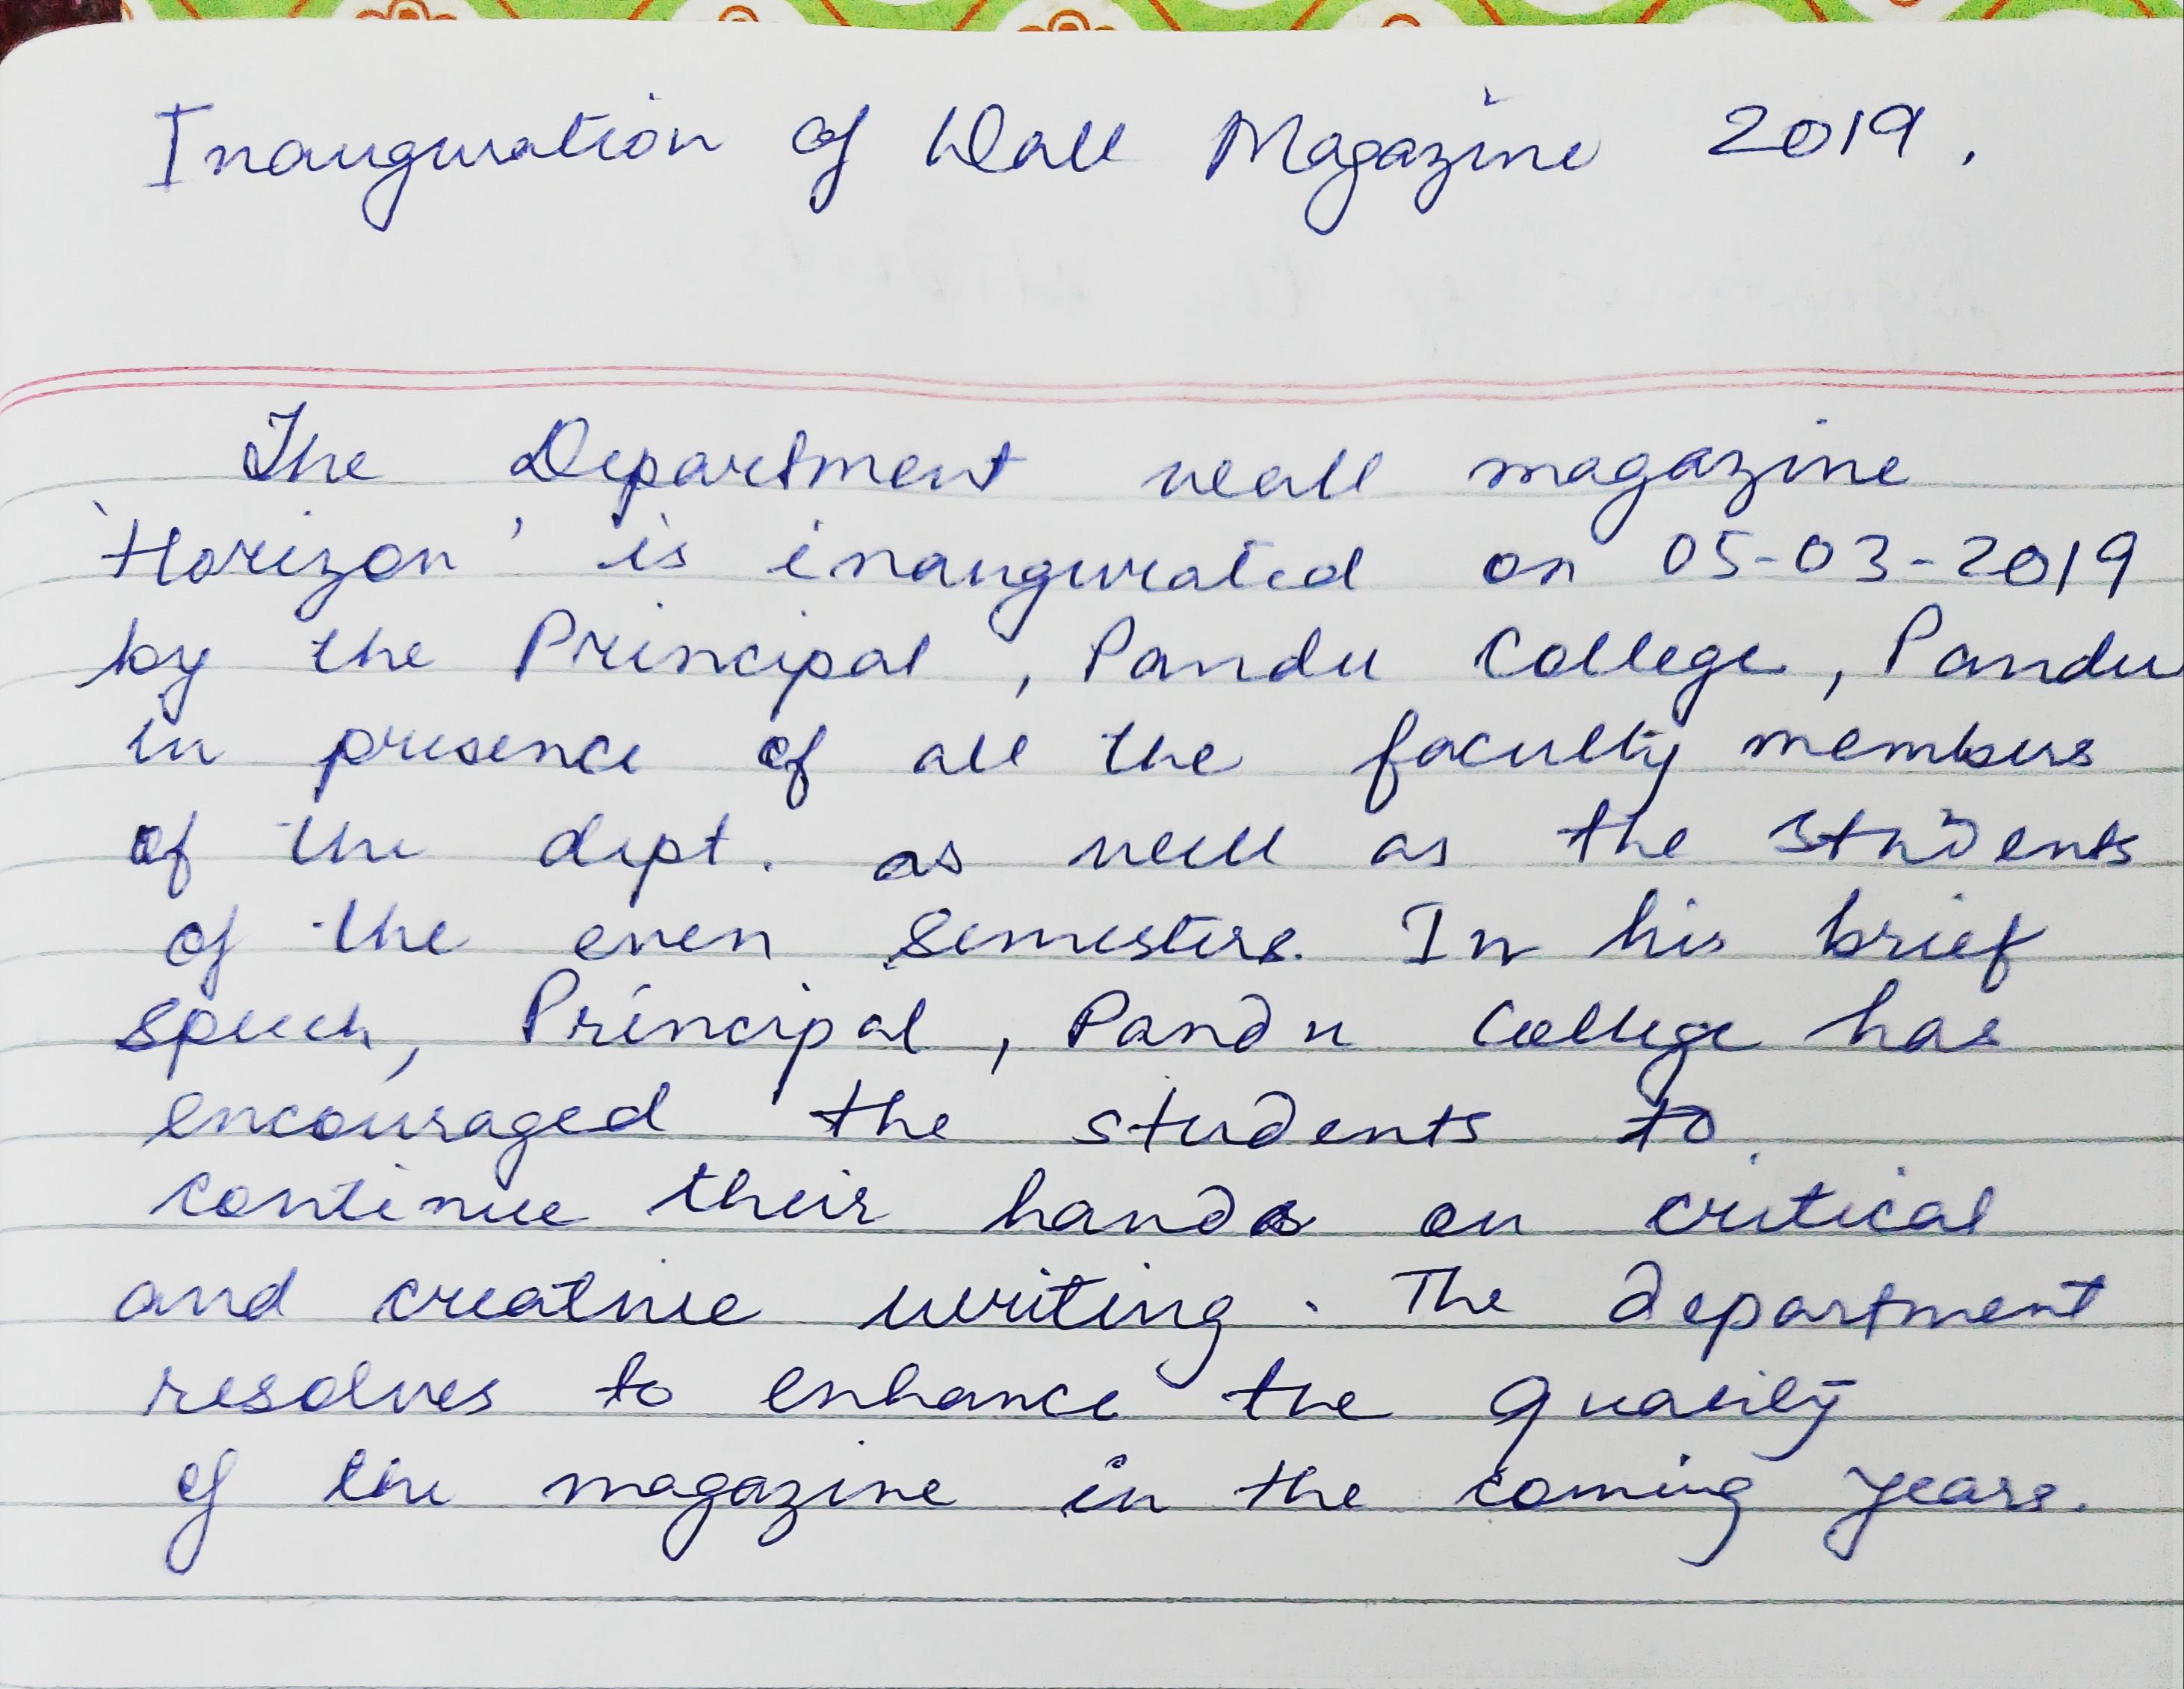 Inauguration of Wall Magazine 2019.
The Department wall magazine
'Horizon' is inaugurated on 05-03-2019
by the Principal, Pandu College, Pandu
in presence of all the faculty members
of the dept. as well as the students
of the even semesters. In his brief
speech, Principal, Pandu College has
encouraged the students to
continue their hands on critical
and creative writing. The department
resolves to enhance the quality
of the magazine in the coming years.